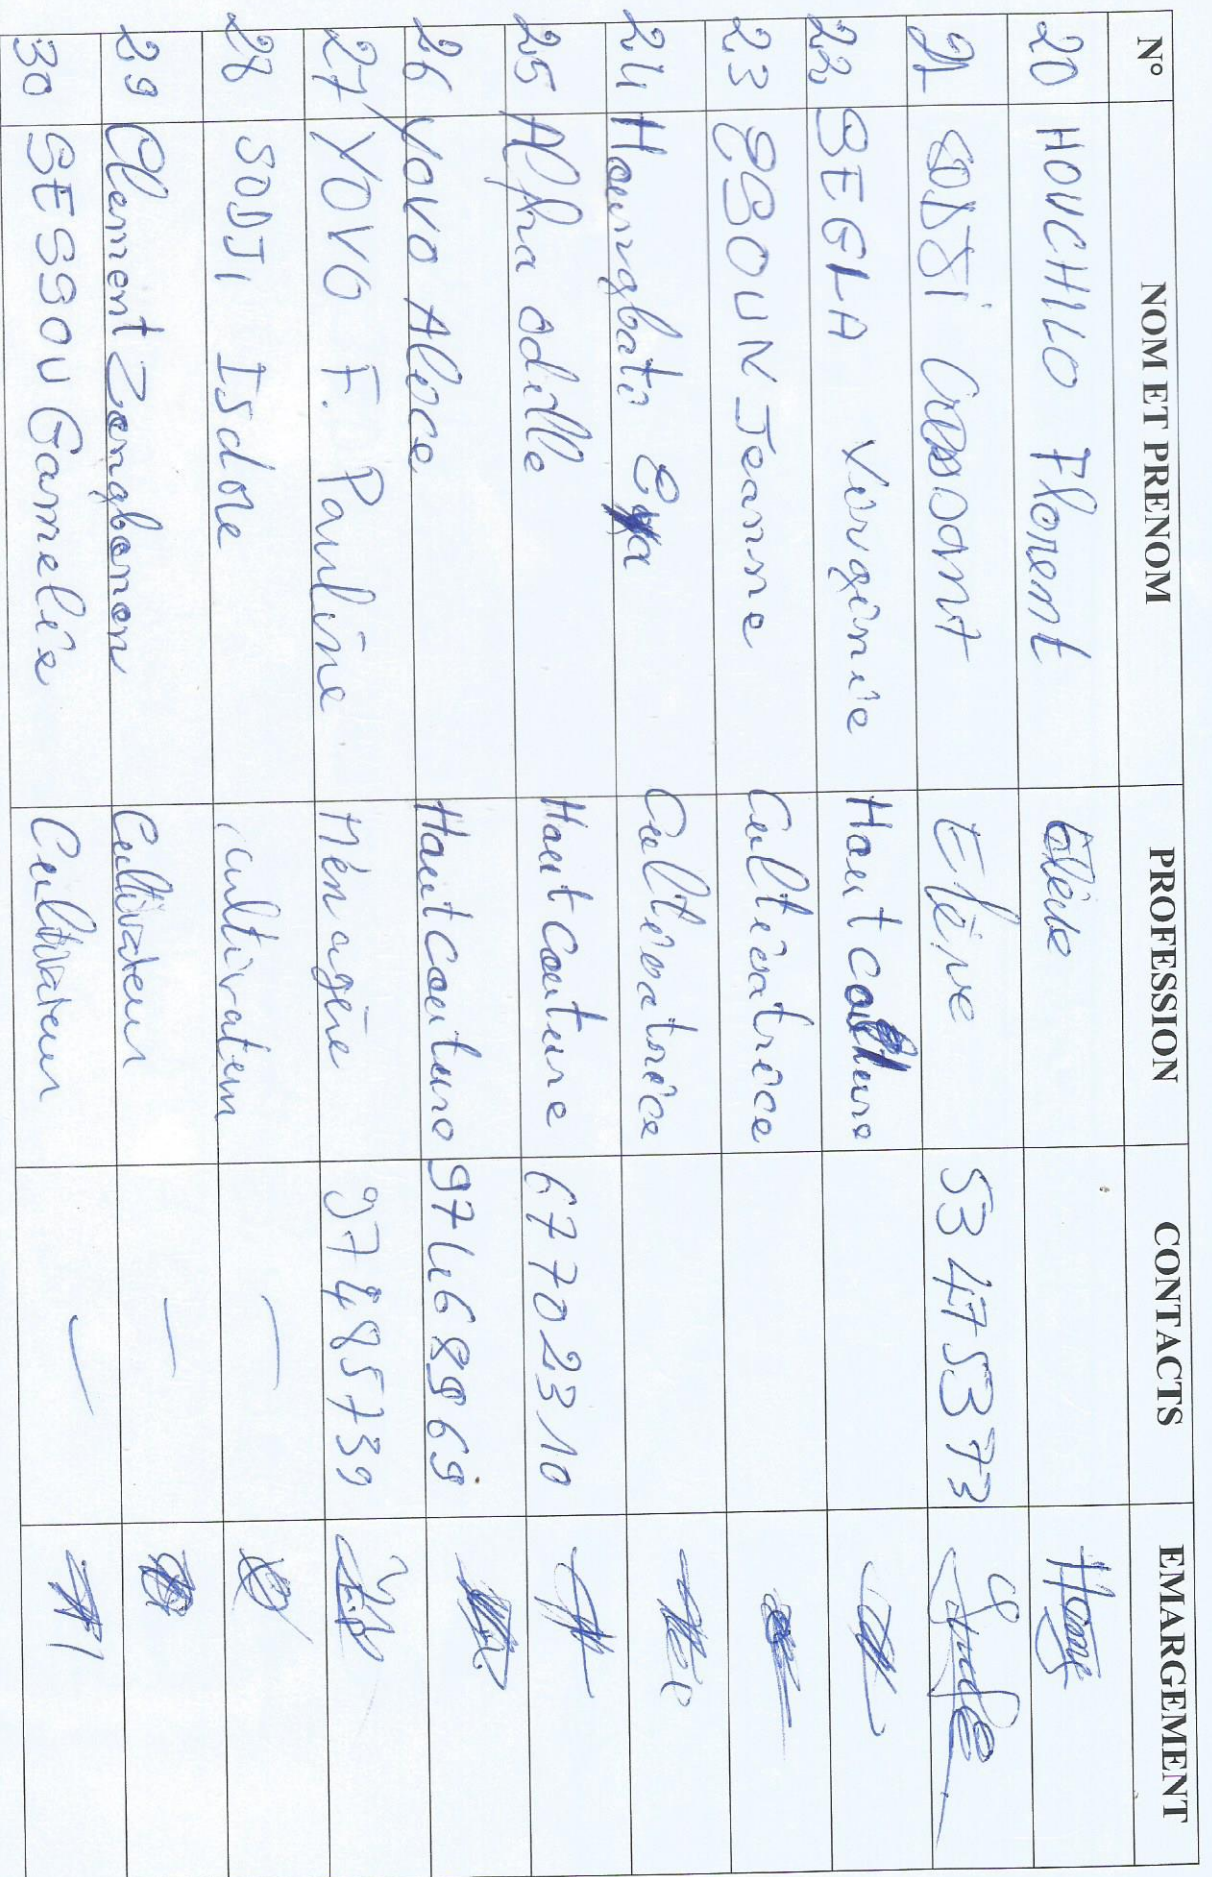 N° NOM ET PRENOM PROFESSION CONTACTS EMARGEMENT
20 HOUCHILO Florent Elève
21 SODJI Cressant Elève 53475373
22 SEGLA Virginie Haut couture
23 ESOUN Jeanne Cultivatrice
24 Houngbato Eya Cultivatrice
25 Alpha odille Haut couture 67702310
26 YOVO Alice Haut couture 97468969
27 YOVO F. Pauline Ménagère 97485739
28 SODJI Isdore cultivateur —
29 Clement Zongbonon Cultivateur —
30 SESSOU Gamelie Cultivateur —